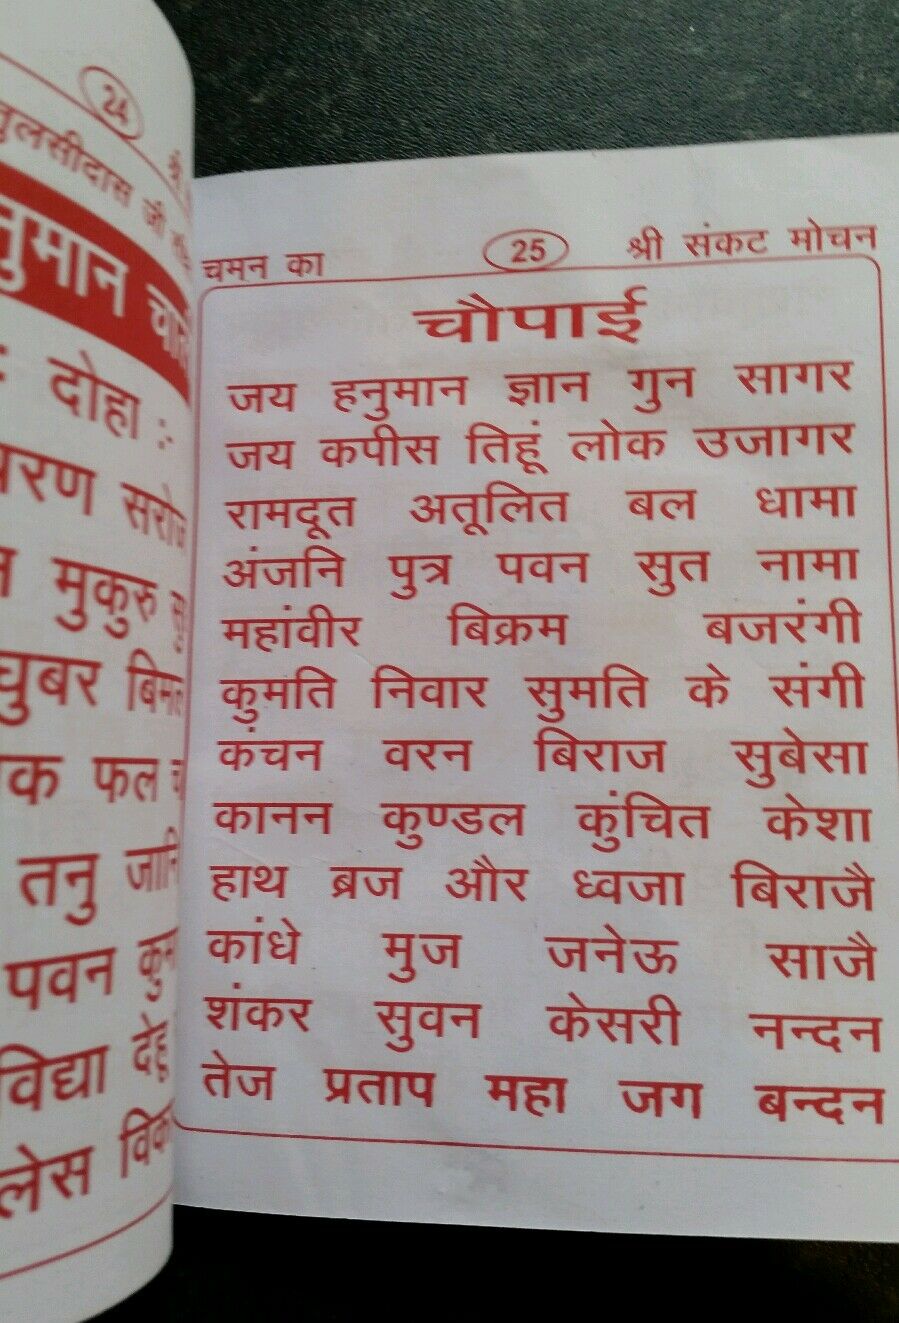 24
तुलसीदास जी
दोहा :-
सरोज
मुकुरु
बिमल
फल
तनु जानि
पवन
विद्या देहू
चमन का 25 श्री संकट मोचन
चौपाई
जय हनुमान ज्ञान गुन सागर
जय कपीस तिहूं लोक उजागर
रामदूत अतूलित बल धामा
अंजनि पुत्र पवन सुत नामा
महांवीर बिक्रम बजरंगी
कुमति निवार सुमति के संगी
कंचन वरन बिराज सुबेसा
कानन कुण्डल कुंचित केशा
हाथ ब्रज और ध्वजा बिराजै
कांधे मुज जनेऊ साजै
शंकर सुवन केसरी नन्दन
तेज प्रताप महा जग बन्दन